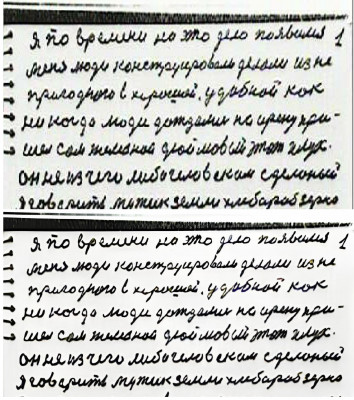 я по времени на это дело появился 1
меня люди конструировали делали из не
пригодного в хорошей, удобной как
ни когда люди дождались на арену при-
шел сам железной дюймовый этот плуг.
он не из чего либо человеком сделоный
я говорить мужик земли хлебараб зерно
я по времени на это дело появился 1
меня люди конструировали делали из не
пригодного в хорошей, удобной как
ни когда люди дождались на арену при-
шел сам железной дюймовый этот плуг.
он не из чего либо человеком сделоный
я говорить мужик земли хлебараб зерно